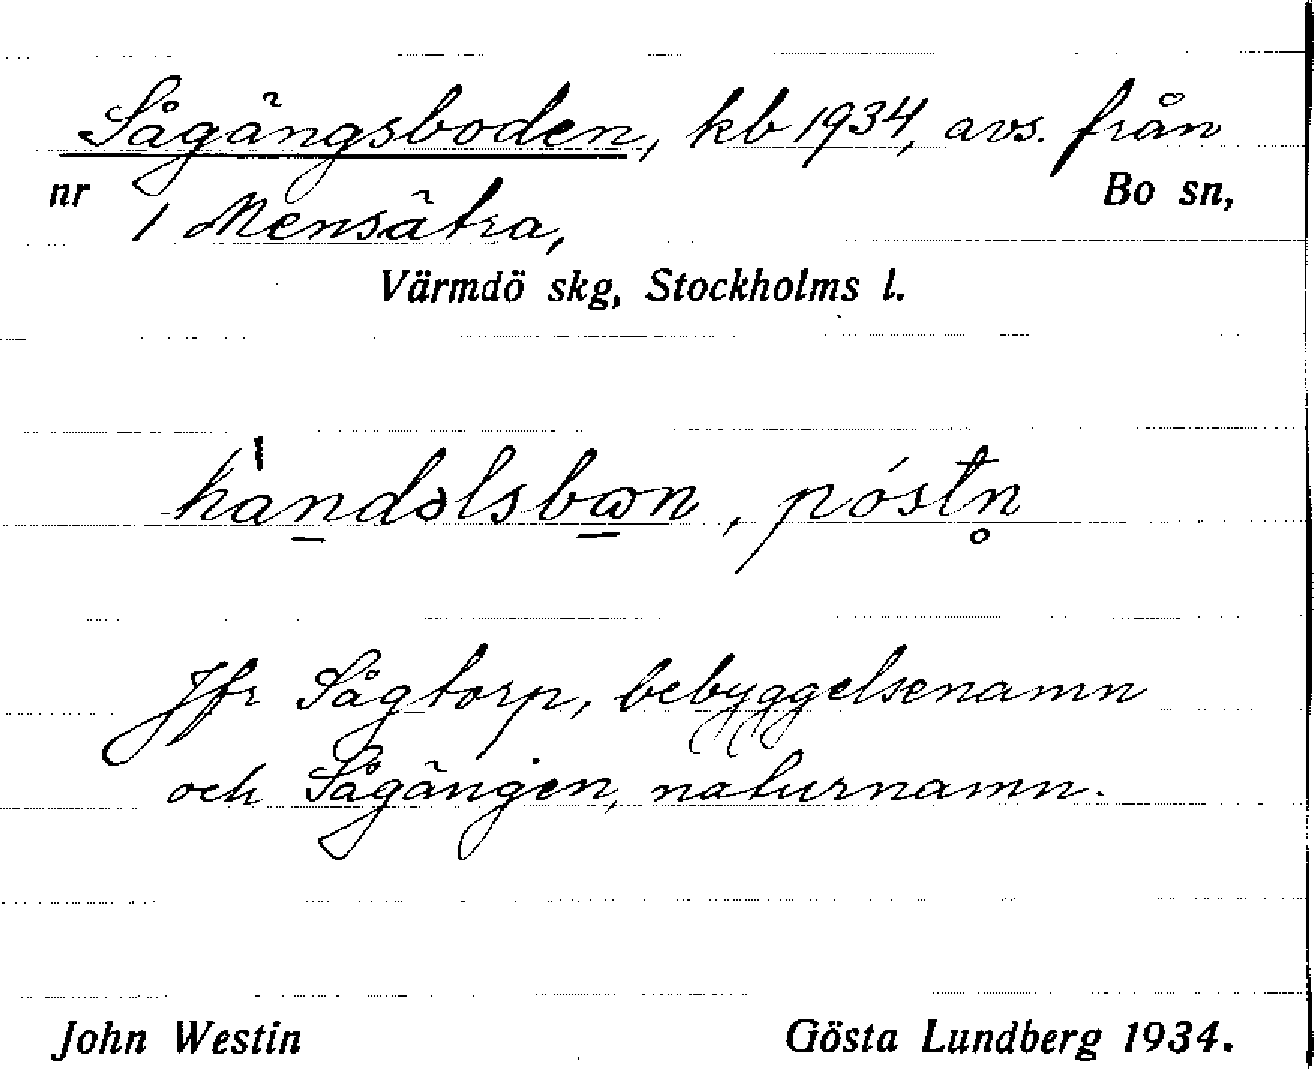 Sågängsboden, kb 1934, avs. från
nr 1 Mensätra, Bo sn,
Värmdö skg, Stockholms l.
handəlsbωn, póstn̥
Jfr Sågtorp, bebyggelsenamn
och Sågängen, naturnamn.
John Westin Gösta Lundberg 1934.